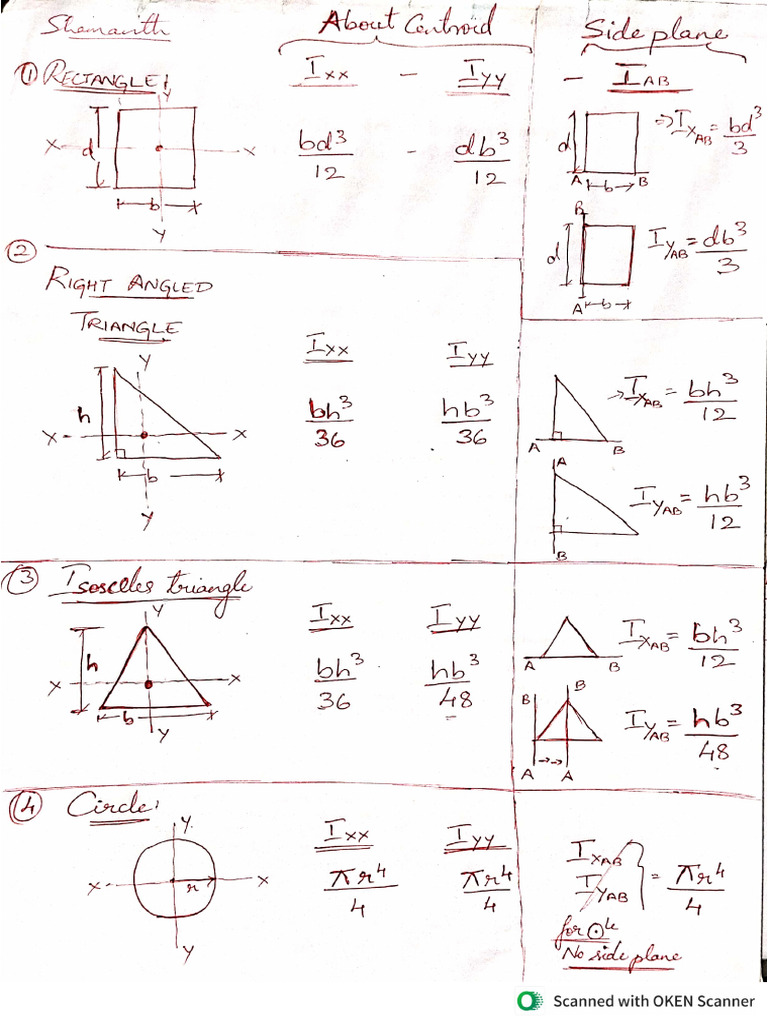 Shamanth
About Centroid
Side plane
① RECTANGLE:
Y
Ixx - Iyy
- IAB
X d X
b
Y
bd³/12 - db³/12
d
A b B
⇒ IxAB = bd³/3
B
d
A b
IyAB = db³/3
②
RIGHT ANGLED
TRIANGLE
Ixx Iyy
Y
h
X X
b
Y
bh³/36 hb³/36
A B
→ IxAB = bh³/12
A
B
IyAB = hb³/12
③ Isosceles triangle
Y
h
X X
b
Y
Ixx Iyy
bh³/36 hb³/48
A B
IxAB = bh³/12
B B
A A
IyAB = hb³/48
④ Circle:
Y
X r X
Y
Ixx Iyy
πr⁴/4 πr⁴/4
IxAB
IyAB } = πr⁴/4
for ⊙le
No side plane
Scanned with OKEN Scanner